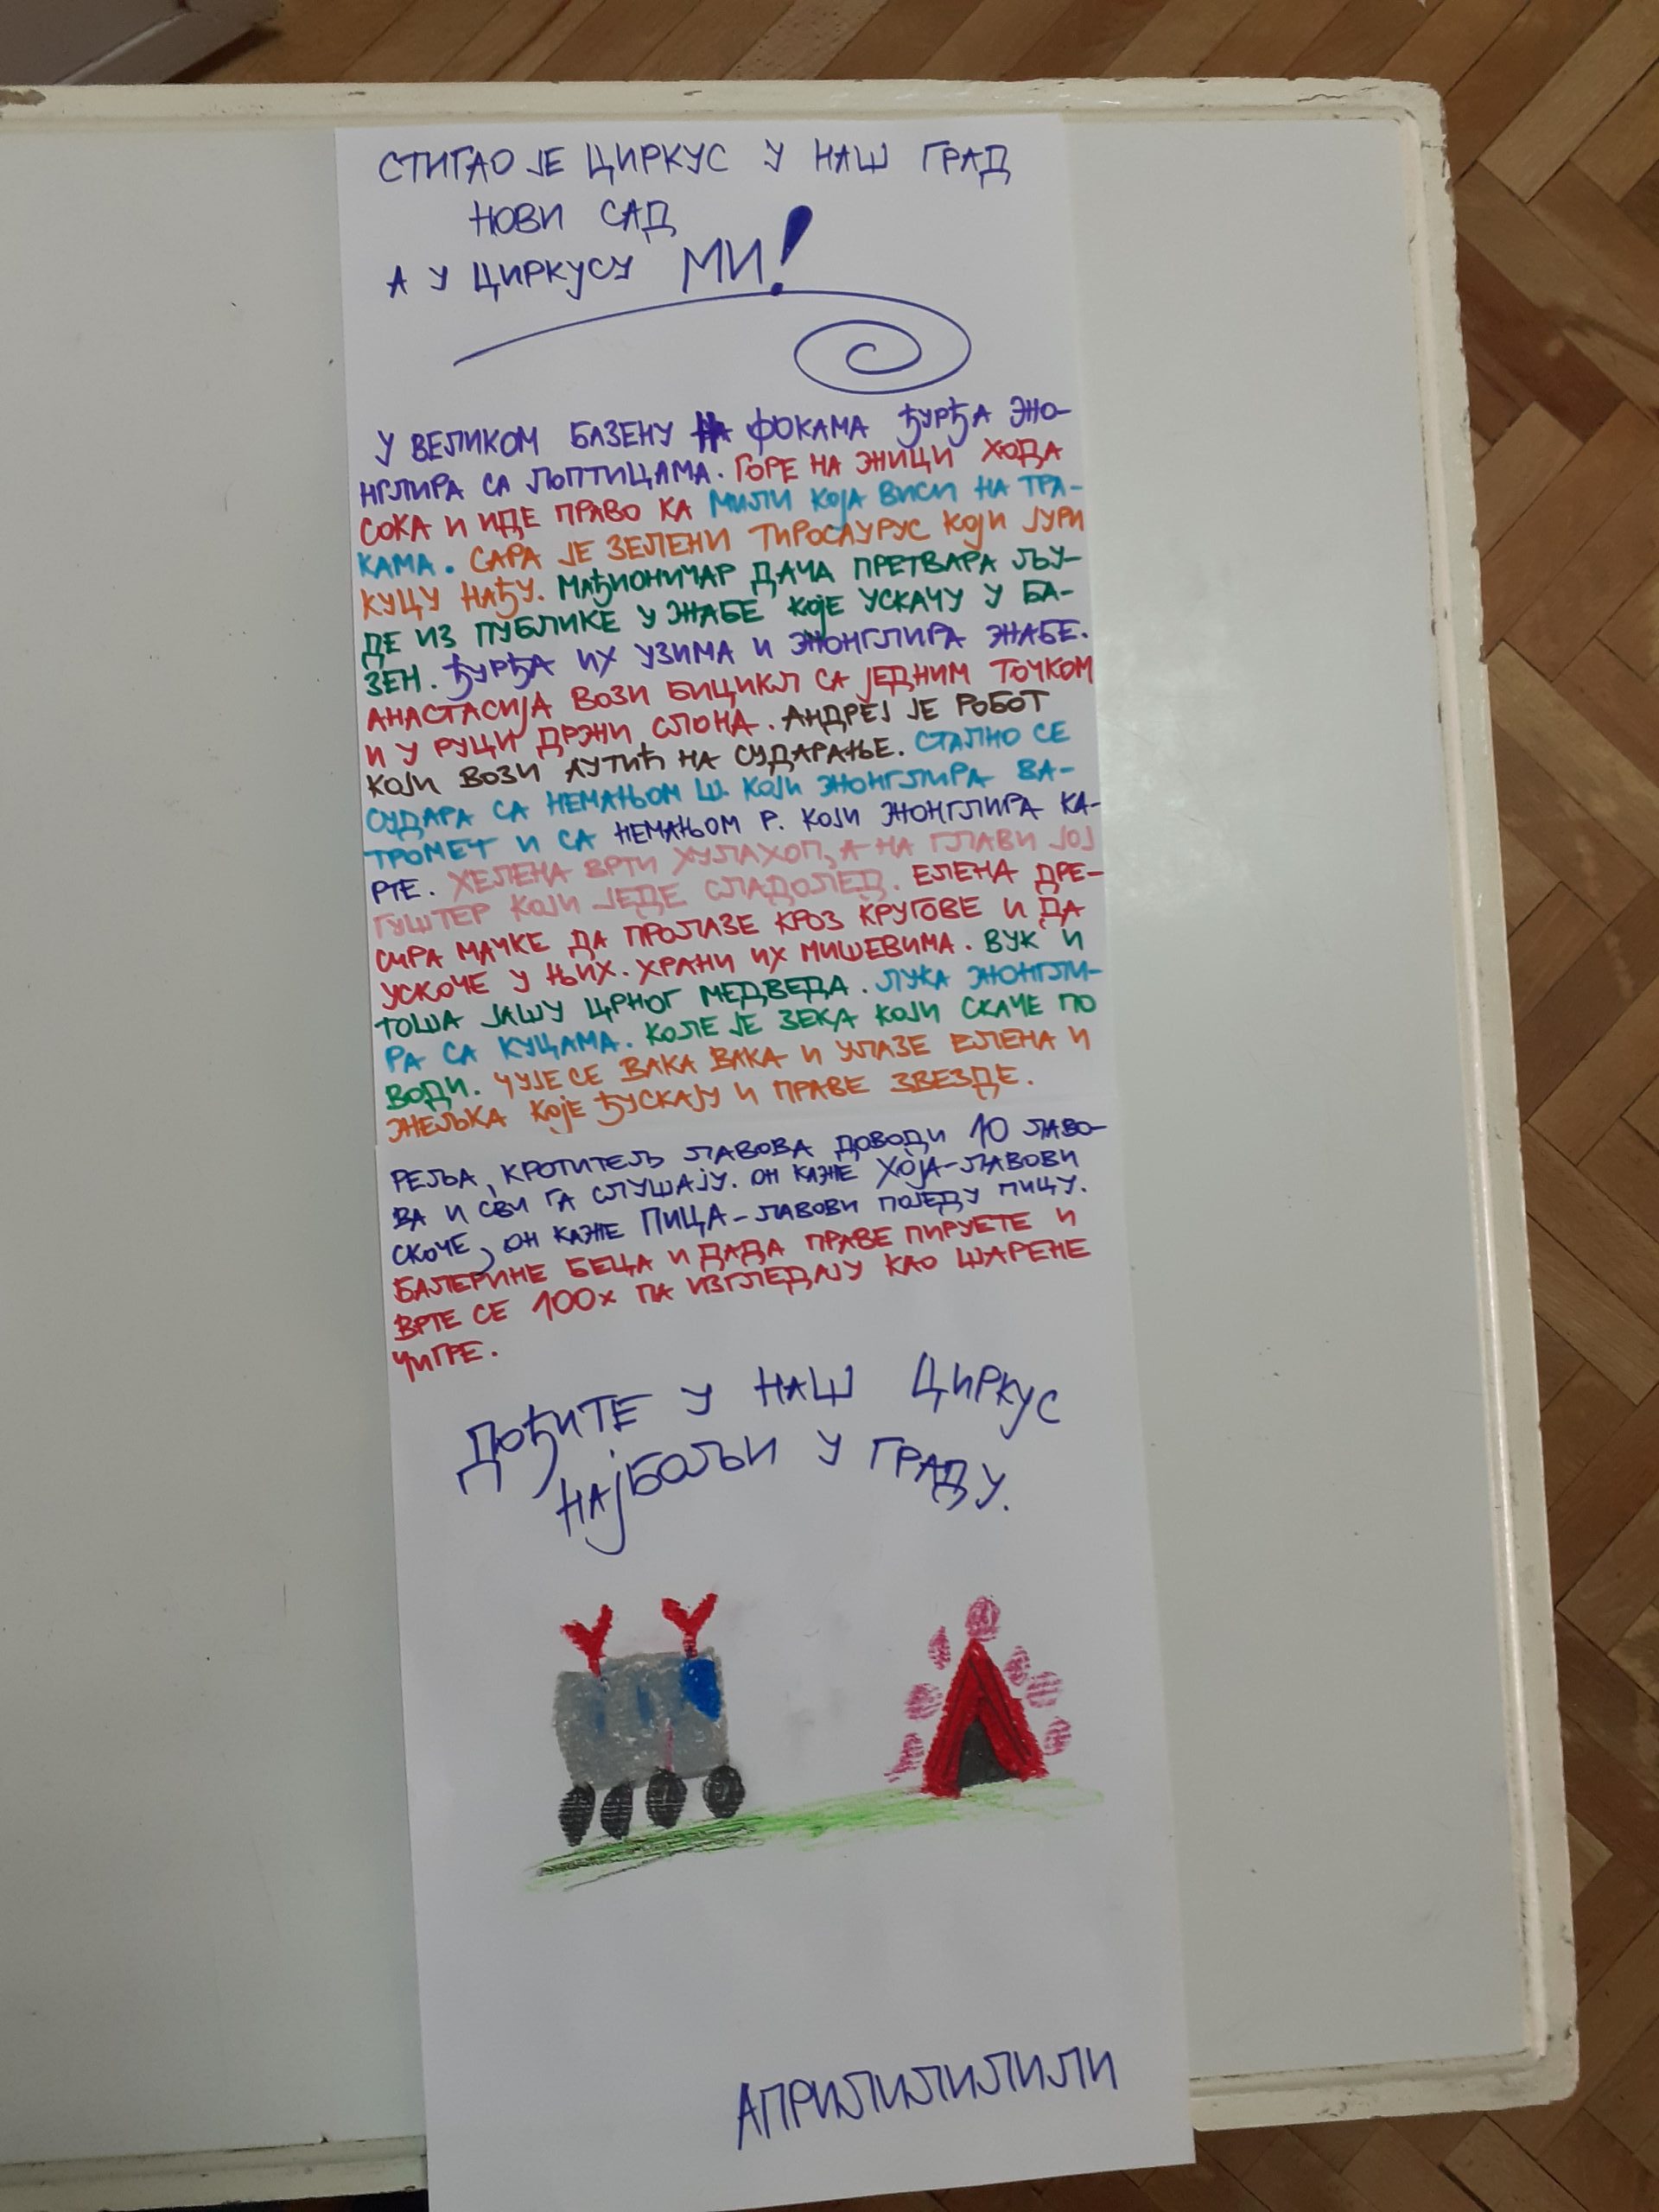 СТИГАО ЈЕ ЦИРКУС У НАШ ГРАД
НОВИ САД
А У ЦИРКУСУ МИ!
У ВЕЛИКОМ БАЗЕНУ НА ФОКАМА ЂУРЂА ЖО-
НГЛИРА СА ЛОПТИЦАМА. ГОРЕ НА ЖИЦИ ХОДА
СОКА И ИДЕ ПРАВО КА МИЛИ КОЈА ВИСИ НА ТРА-
КАМА. САРА ЈЕ ЗЕЛЕНИ ТИРОСАУРУС КОЈИ ЈУРИ
КУЦУ НАЂУ. МАЂИОНИЧАР ДАЧА ПРЕТВАРА ЉУ-
ДЕ ИЗ ПУБЛИКЕ У ЖАБЕ КОЈЕ УСКАЧУ У БА-
ЗЕН. ЂУРЂА ИХ УЗИМА И ЖОНГЛИРА ЖАБЕ.
АНАСТАСИЈА ВОЗИ БИЦИКЛ СА ЈЕДНИМ ТОЧКОМ
И У РУЦИ ДРЖИ СЛОНА. АНДРЕЈ ЈЕ РОБОТ
КОЈИ ВОЗИ АУТИЋ НА СУДАРАЊЕ. СТАЛНО СЕ
СУДАРА СА НЕМАЊОМ Ш. КОЈИ ЖОНГЛИРА ВА-
ТРОМЕТ И СА НЕМАЊОМ Р. КОЈИ ЖОНГЛИРА КА-
РТЕ. ХЕЛЕНА ВРТИ ХУЛАХОП, А НА ГЛАВИ ЈОЈ
ГУШТЕР КОЈИ ЈЕДЕ СЛАДОЛЕД. ЕЛЕНА ДРЕ-
СИРА МАЧКЕ ДА ПРОЛАЗЕ КРОЗ КРУГОВЕ И ДА
УСКОЧЕ У ЊИХ. ХРАНИ ИХ МИШЕВИМА. ВУК И
ТОША ЈАШУ ЦРНОГ МЕДВЕДА. ЛУКА ЖОНГЛИ-
РА СА КУЦАМА. КОЛЕ ЈЕ ЗЕКА КОЈИ СКАЧЕ ПО
ВОДИ. ЧУЈЕ СЕ ВАКА ВАКА И УЛАЗЕ ЕЛЕНА И
ЖЕЉКА КОЈЕ ЂУСКАЈУ И ПРАВЕ ЗВЕЗДЕ.
РЕЉА, КРОТИТЕЉ ЛАВОВА ДОВОДИ 10 ЛАВО-
ВА И СВИ ГА СЛУШАЈУ. ОН КАЖЕ ХОЈА-ЛАВОВИ
СКОЧЕ, ОН КАЖЕ ПИЦА-ЛАВОВИ ПОЈЕДУ ПИЦУ.
БАЛЕРИНЕ БЕЦА И ДАДА ПРАВЕ ПИРУЕТЕ И
ВРТЕ СЕ 100X ПА ИЗГЛЕДАЈУ КАО ШАРЕНЕ
ЧИГРЕ.
ДОЂИТЕ У НАШ ЦИРКУС
НАЈБОЉИ У ГРАДУ.
АПРИЛИЛИЛИЛИ